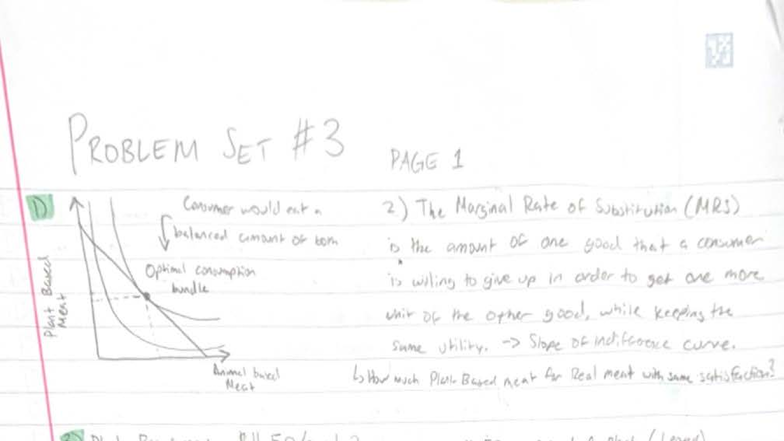 PROBLEM SET #3
PAGE 1
1)
Consumer would eat a
balanced amount of both
Optimal consumption
bundle
Plant Based
Meat
Animal based
Meat
2) The Marginal Rate of Substitution (MRS)
is the amount of one good that a consumer
is willing to give up in order to get one more
unit of the other good, while keeping the
same utility. -> Slope of indifference curve.
↳ How much Plant Based meat for Real meat with same satisfaction?